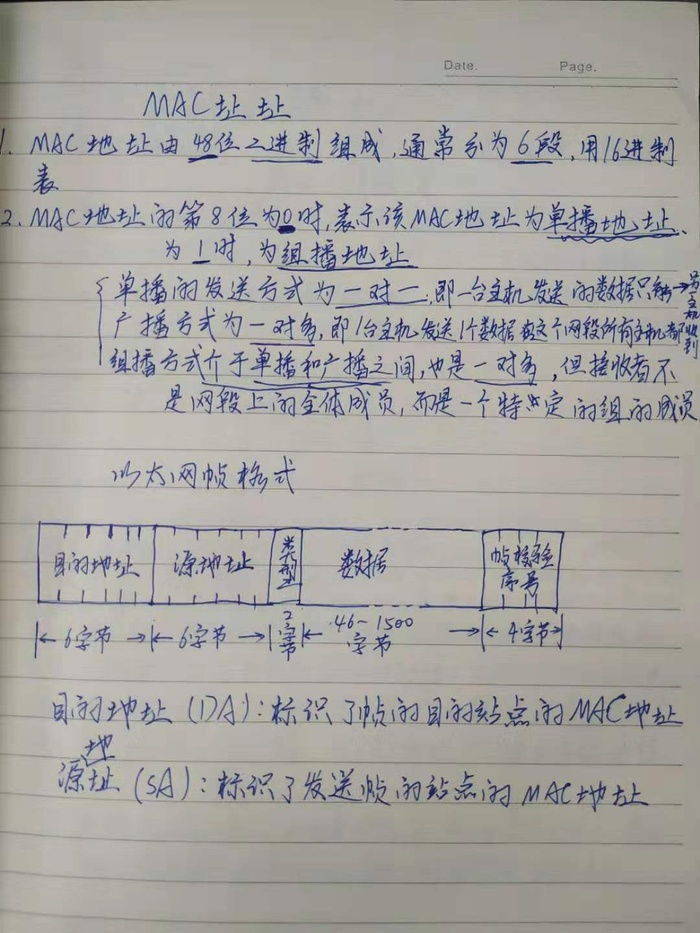 Date. Page.
MAC址址
1. MAC地址由48位二进制组成,通常分为6段,用16进制
表
2. MAC地址的第8位为0时,表示该MAC地址为单播地址.
为1时,为组播地址
单播的发送方式为一对一,即一台主机发送的数据只能→
广播方式为一对多,即1台主机发送1个数据在这个网段所有主机都
收到
组播方式介于单播和广播之间,也是一对多,但接收者不
是网段上的全体成员,而是一个特定的组的成员
以太网帧格式
目的地址 源地址 类型 数据 帧校验序号
6字节 6字节 2字节 46~1500字节 4字节
目的地址(DA):标识了帧的目的站点的MAC地址
源地址(SA):标识了发送帧的站点的MAC地址